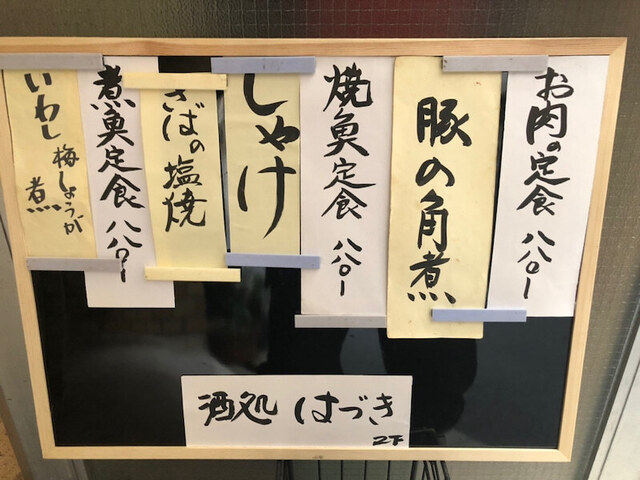 お肉の定食 八八〇ー
豚の角煮
焼魚定食 八八〇ー
しゃけ
さばの塩焼
煮魚定食 八八〇ー
いわし梅しょうが煮
酒処 はづき
2F